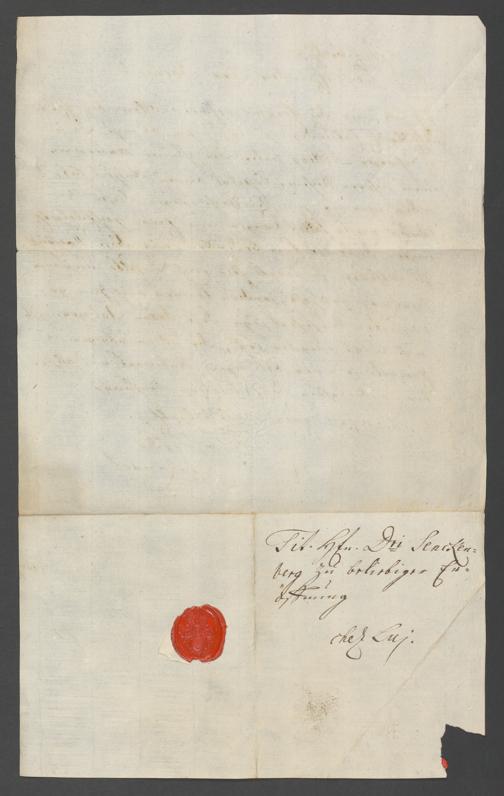 Tit. Hfn. Dris Sencken-
berg zu beliebiger Er-
öffnung
chez Luj.